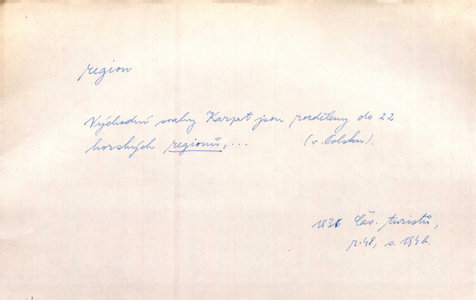 region
Východní svahy Karpat jsou rozděleny do 22
horských regionů, ... (v Polsku).
1936 Čas. turistů,
r. 48, s. 194